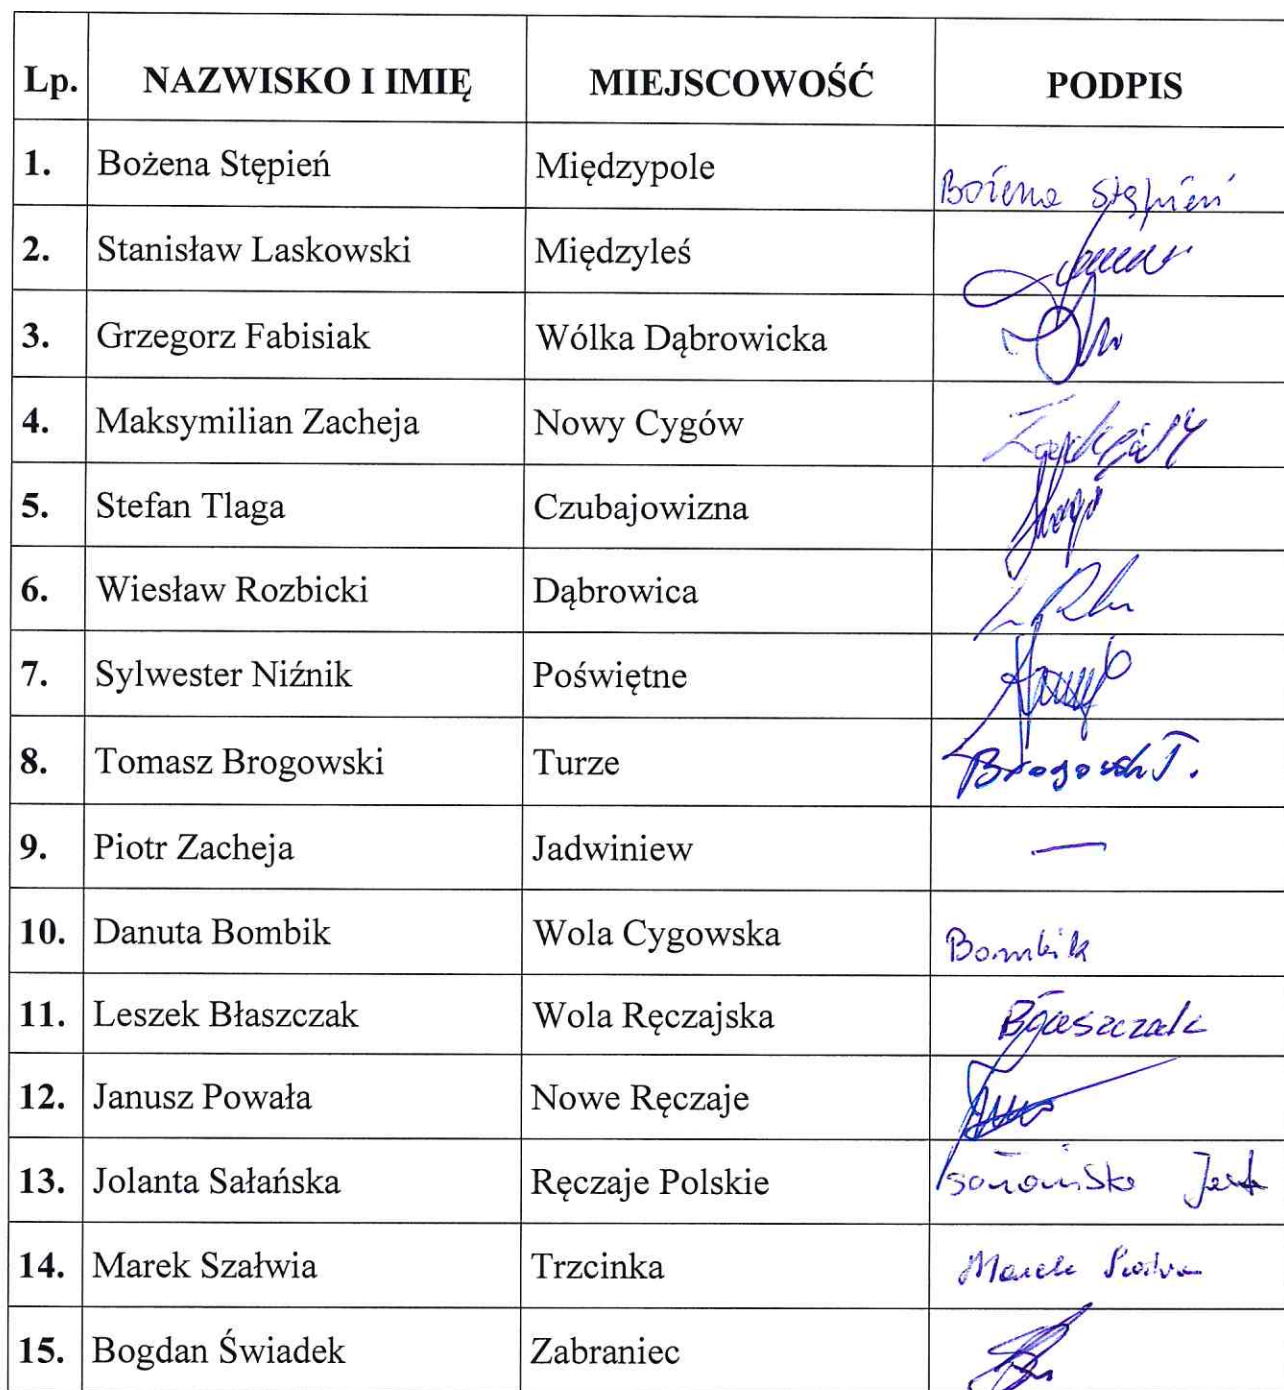 Lp. NAZWISKO I IMIĘ MIEJSCOWOŚĆ PODPIS
1. Bożena Stępień Międzypole Bożena Stępień
2. Stanisław Laskowski Międzyleś
3. Grzegorz Fabisiak Wólka Dąbrowicka
4. Maksymilian Zacheja Nowy Cygów
5. Stefan Tlaga Czubajowizna
6. Wiesław Rozbicki Dąbrowica
7. Sylwester Niźnik Poświętne
8. Tomasz Brogowski Turze T.
9. Piotr Zacheja Jadwiniew —
10. Danuta Bombik Wola Cygowska Bombik
11. Leszek Błaszczak Wola Ręczajska Błaszczak
12. Janusz Powała Nowe Ręczaje
13. Jolanta Sałańska Ręczaje Polskie
14. Marek Szałwia Trzcinka Marek
15. Bogdan Świadek Zabraniec